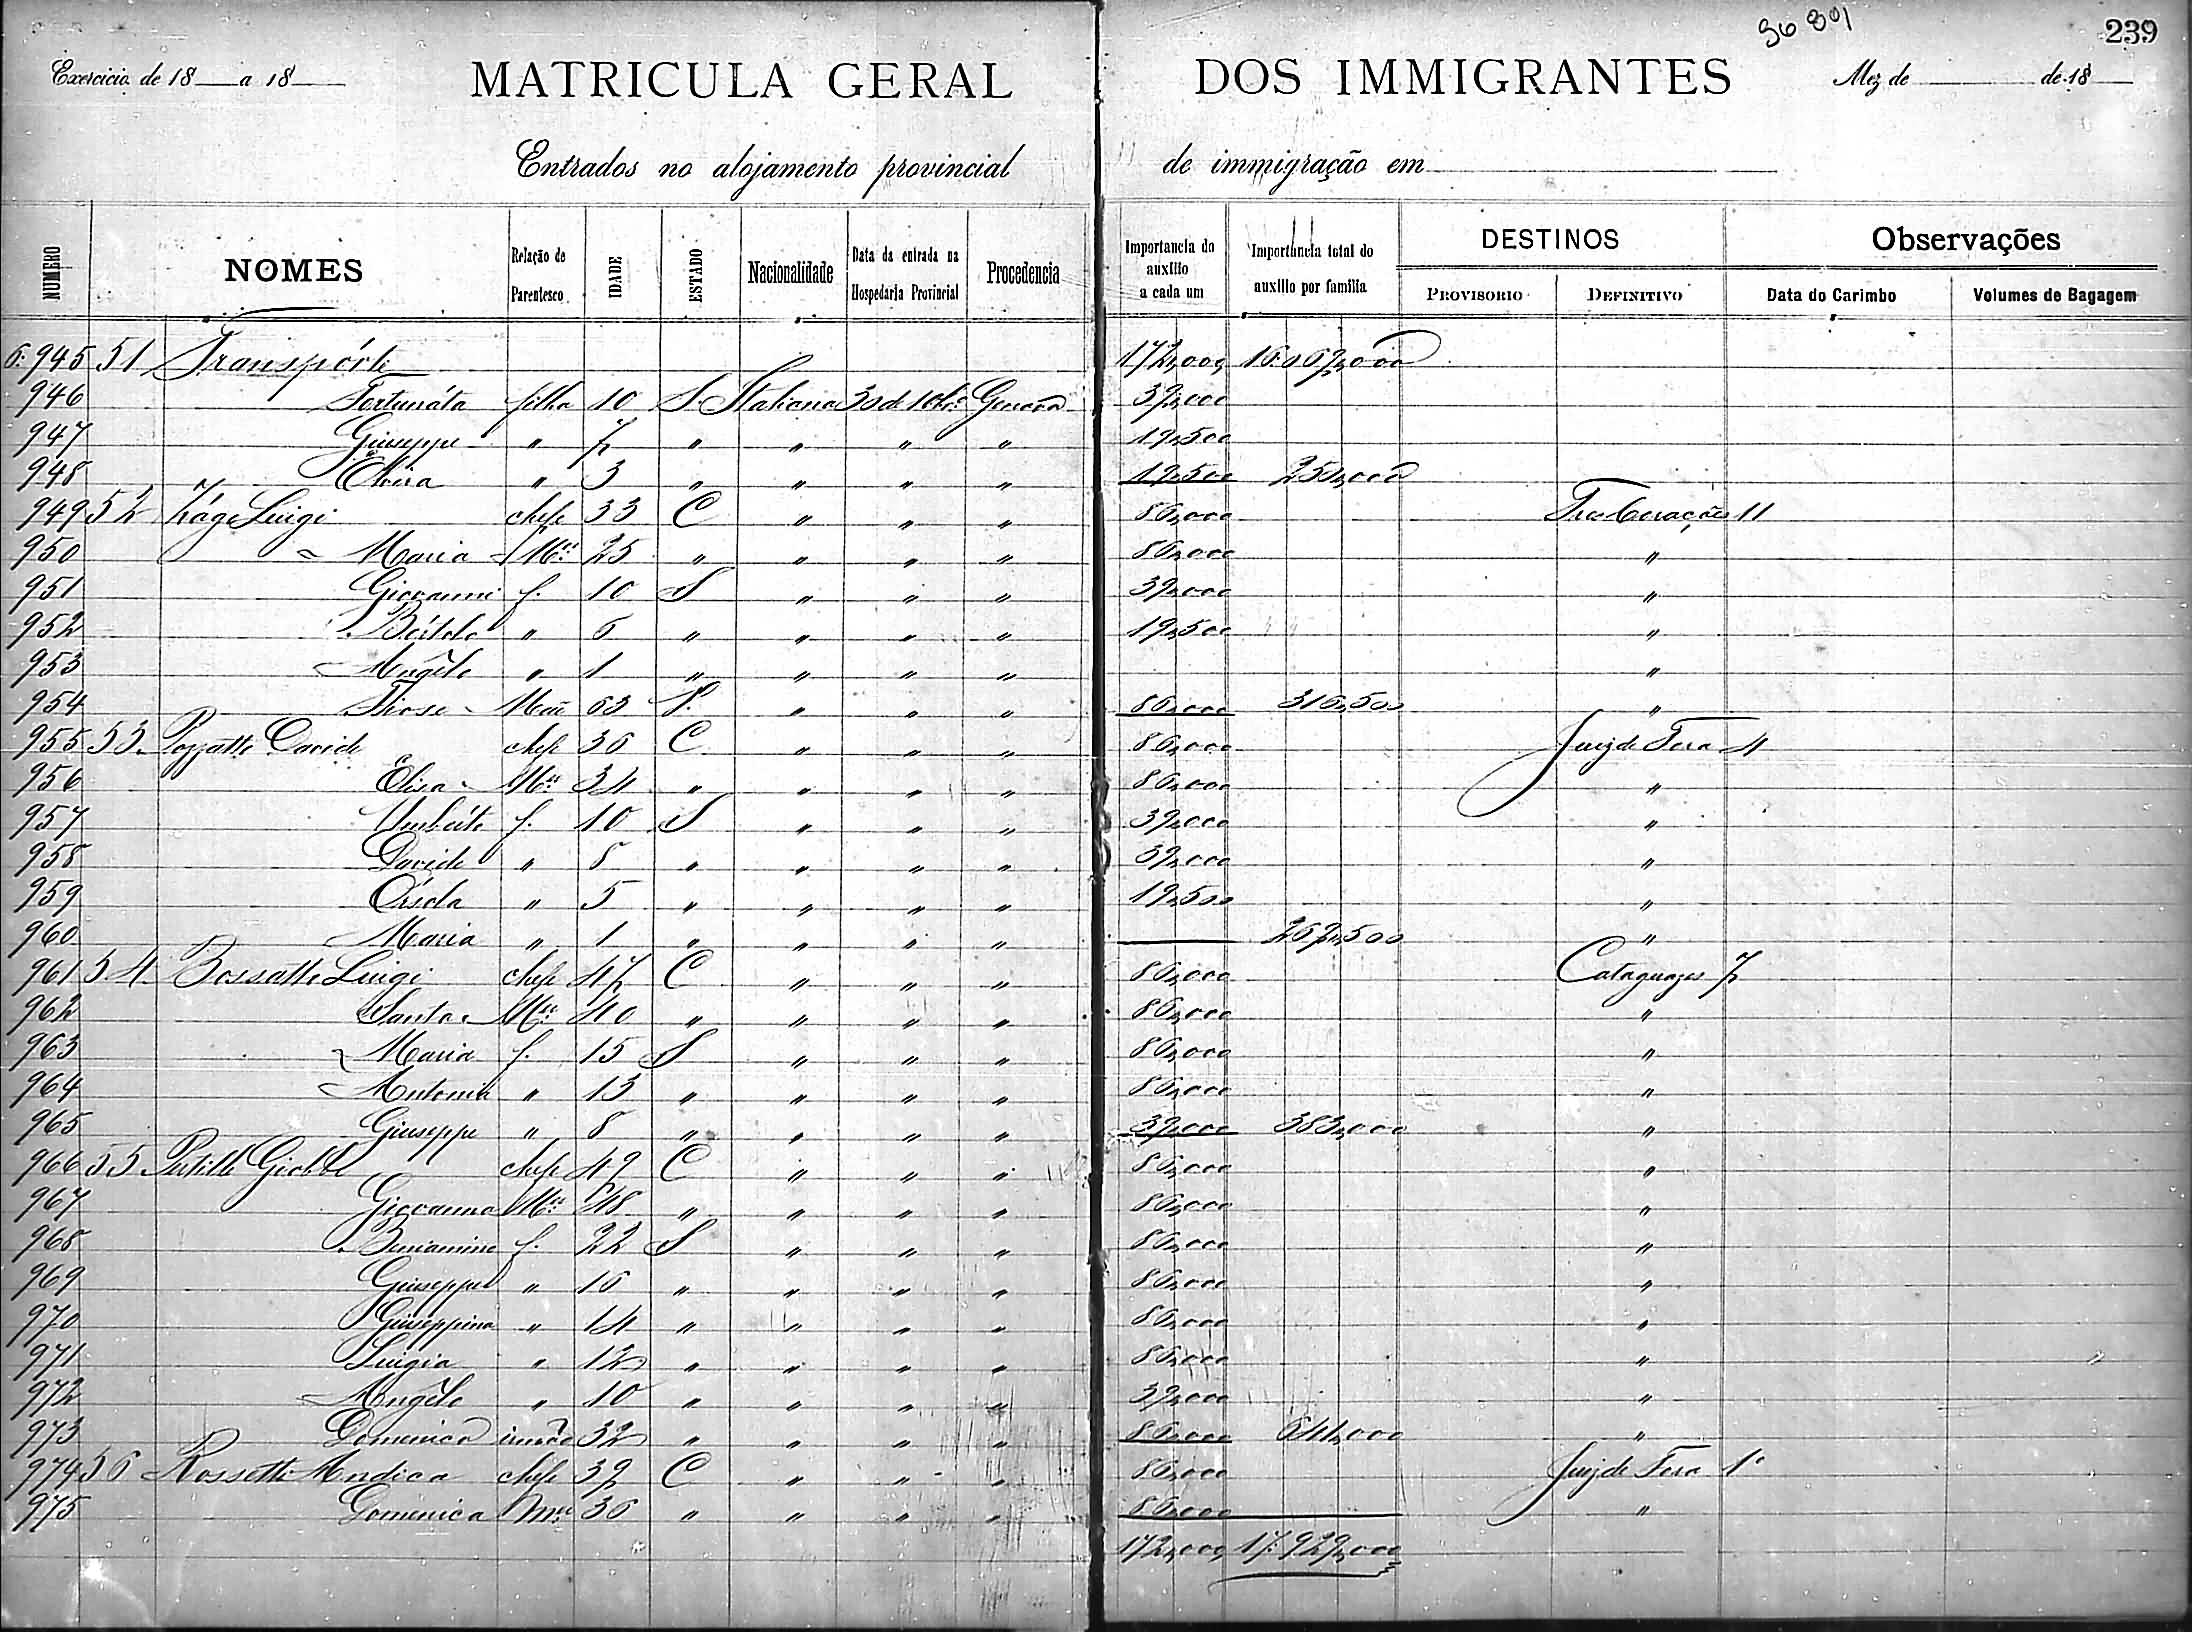 36801
239
Exercicio de 18 a 18 MATRICULA GERAL DOS IMMIGRANTES Mez de de 18
Entrados no alojamento provincial de immigração em
NUMERO NOMES Relação de Parentesco IDADE ESTADO Nacionalidade Data da entrada na Hospedaria Provincial Procedencia Importancia do auxilio a cada um Importancia total do auxilio por familia DESTINOS PROVISORIO DEFINITIVO Observações Data do Carimbo Volumes de Bagagem
6.945 51 Transpórte 172,000 16:067,000
946 Fortunáta filha 10 S. Italiana 30 de 10bro Genova 39,000
947 Giuseppe " 7 " " " " 19,500
948 Elvira " 3 " " " " 19,500 250,000
949 52 Luigi chefe 33 C " " " 86,000 Tres Corações 11
950 Maria Mer 25 " " " " 86,000 "
951 Giovanni f. 10 S " " " 39,000 "
952 " 6 " " " " 19,500 "
953 Angélo " 1 " " " " "
954 Mãe 63 " " " 86,000 316,500 "
955 53 Pozzatto Davide chefe 36 C " " " 86,000 Juiz de Fora 4
956 Elisa Mer 34 " " " " 86,000 "
957 Umbérto f. 10 S " " " 39,000 "
958 Davide " 8 " " " " 39,000 "
959 Orsola " 5 " " " " 19,500 "
960 Maria " 1 " " " " 269,500 "
961 54 Bossatto Luigi chefe 47 C " " " 86,000 Cataguazes 7
962 Santa Mer 40 " " " " 86,000 "
963 Maria f. 15 S " " " 86,000 "
964 Antonia " 13 " " " " 86,000 "
965 Giuseppe " 8 " " " " 39,000 383,000 "
966 55 chefe 49 C " " " 86,000 "
967 Giovanna Mer 48 " " " " 86,000 "
968 Beniamino f. 22 S " " " 86,000 "
969 Giuseppe " 16 " " " " 86,000 "
970 Giuseppina " 14 " " " " 86,000 "
971 Luigia " 12 " " " " 86,000 "
972 Angélo " 10 " " " " 39,000 "
973 Domenica irmão 32 " " " " 86,000 641,000 "
974 56 Rossetto Andrea chefe 39 C " " " 86,000 Juiz de Fora 1º
975 Domenica Mer 36 " " " " 86,000 "
172,000 17:929,000